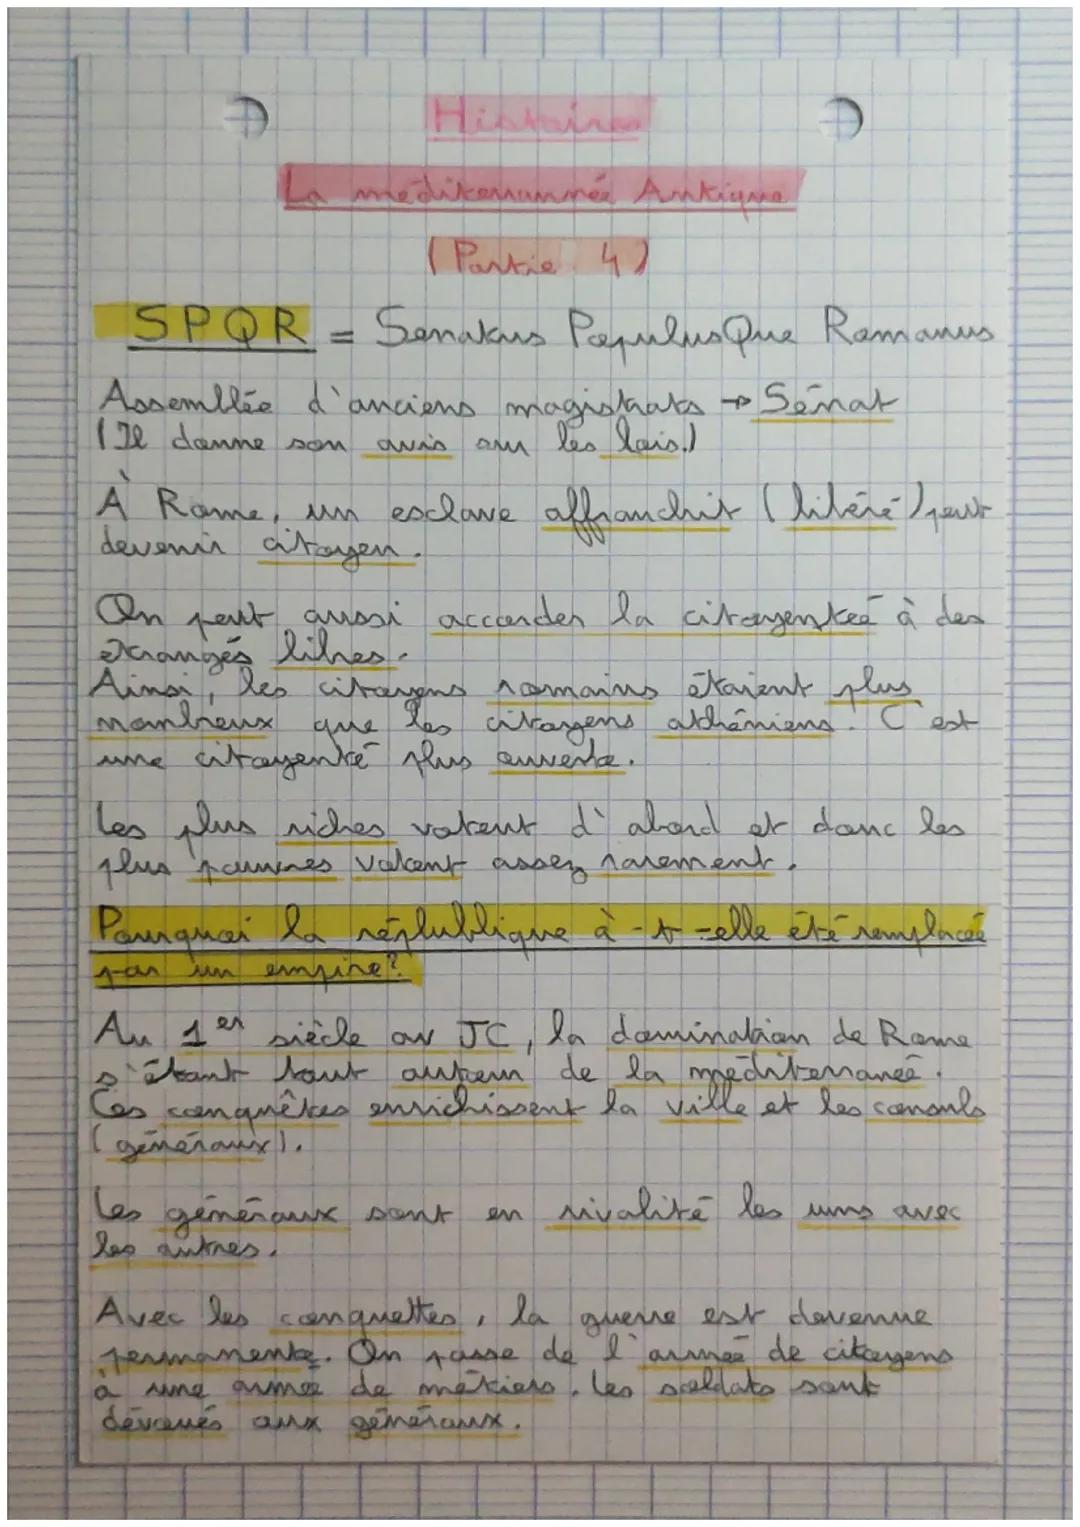 Histoire
La méditerrannée Antique
(Partie 4)
SPQR = Senatus PopulusQue Romanus
Assemblée d'anciens magistrats → Sénat
(Il donne son avis sur les lois.)
À Rome, un esclave affranchit (libéré) peut
devenir citoyen.
On peut aussi accorder la citoyenteé à des
étrangés libres.
Ainsi, les citoyens romains étaient plus
nombreux que les citoyens athéniens. C'est
une citoyenté plus ouverte.
Les plus riches votent d'abord et donc les
plus pauvres votent assez rarement.
Pourquoi la républubligue à-t-elle été remplacée
par un empire?
Au 1er siècle av JC, la domination de Rome
s'étant tout autour de la méditerranée.
Ces conquêtes enrichissent la ville et les consuls
(généraux).
Les généraux sont en rivalité les uns avec
les autres.
Avec les conquettes, la guerre est devenue
permanente. On passe de l'armée de citoyens
à une armée de métiers. Les soldats sont
dévoués aux généraux.